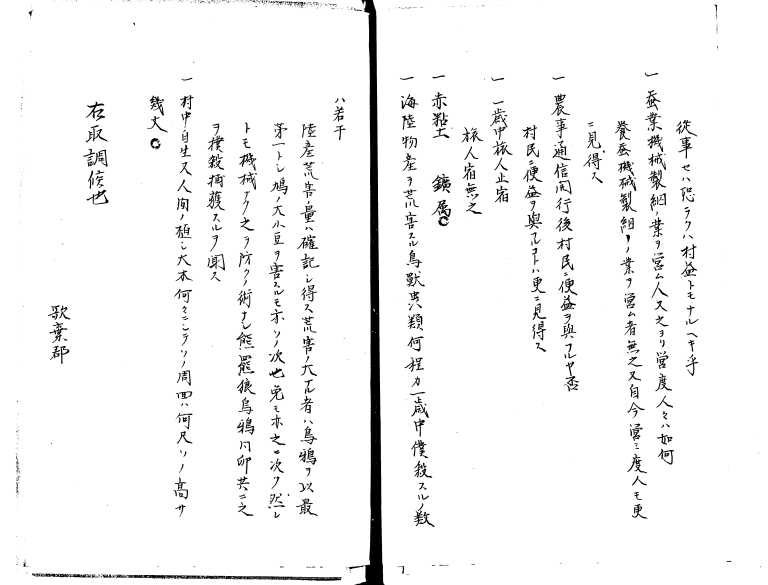 従事セハ恐ラクハ村益トモナルヘキ乎
一 蚕業機械製網ノ業ヲ営ム人又之ヨリ営度人々ハ如何
養蚕機械製網ノ業ヲ営ム者無之又自今営ミ度人モ更
ニ見得ス
一 農事通信開行後村民ニ便益ヲ與フルヤ否
村民ニ便益ヲ與フルコトハ更ニ見得ス
一 一歳中旅人止宿
旅人宿無之
一 赤粘土 鑛属
一 海陸物産ヲ荒害スル鳥獣虫類何程カ一歳中僕殺スルノ数
ハ若干
陸産荒害ノ量ハ確記シ得ス荒害ノ大ナル者ハ烏鴉ヲ以最
第一トシ鳩ノ大小豆ヲ害スルモ亦ソノ次也兎モ亦之ニ次ク然シ
トモ機械ナク之ヲ防クノ術ナシ熊羆狼烏鴉川卯共ニ之
ヲ撲殺捕獲スルヲ聞ス
一 村中自生又人間ノ植シ大木何々ニシテソノ周囲ハ何尺ソノ高サ
幾丈
右取調候也
歌棄郡